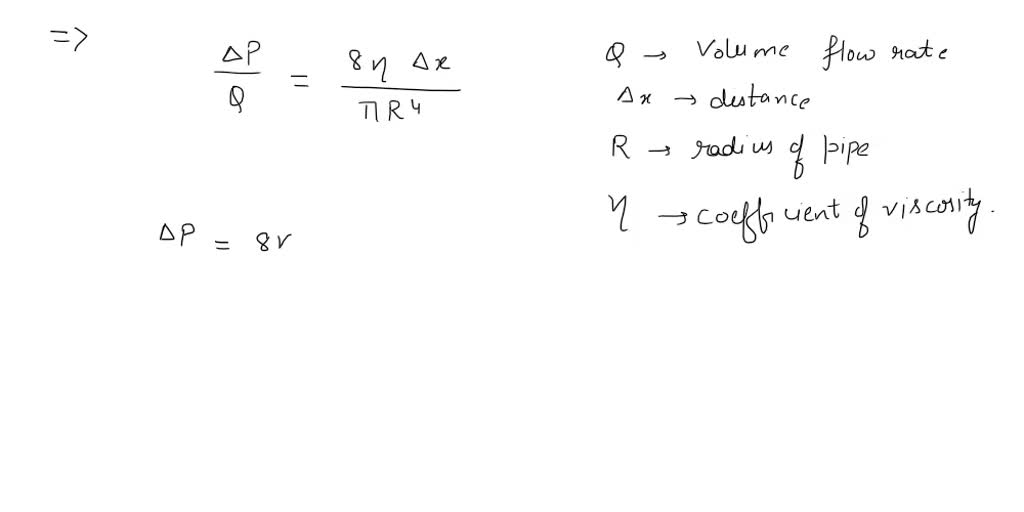 =>
ΔP/Q = 8η Δx/πR⁴
Q → Volume flow rate
Δx → distance
R → radius of pipe
η → coefficient of viscosity.
ΔP = 8r